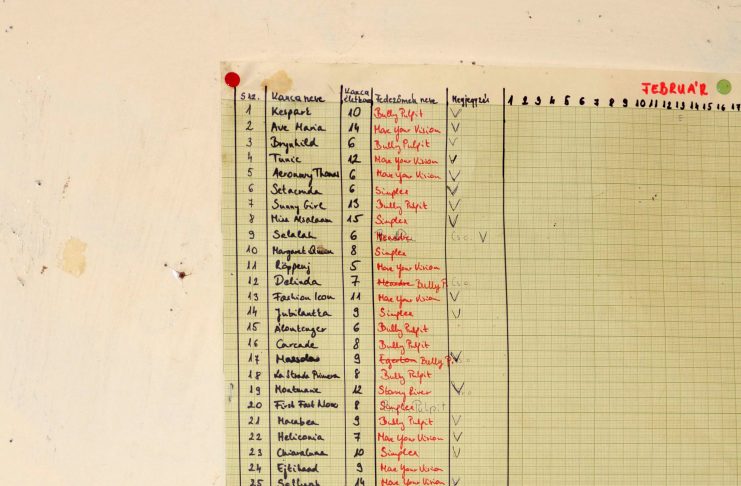 FEBRUÁR
Ssz. Kanca neve Kanca életkora Fedezőmén neve Megjegyzés 1 2 3 4 5 6 7 8 9 10 11 12 13 14 15 16 17
1 Kespart 10 Bully Pulpit V
2 Ave Maria 14 Move Your Vision V
3 Brynhild 6 Bully Pulpit V
4 Tunic 12 Move Your Vision V
5 6 Move Your Vision V
6 6 Simplex V
7 Sunny Girl 13 Bully Pulpit V
8 Miss 15 Simplex V
9 Salalah 6 V
10 Margaret Queen 8 Simplex
11 Röppenj 5 Move Your Vision
12 Delinda 7 Bully P.
13 Fashion Icon 11 Move Your Vision V
14 Jubilantka 9 Simplex V
15 6 Bully Pulpit
16 Carcade 8 Bully Pulpit
17 9 Egerton Bully P. V
18 La Strada Primera 8 Bully Pulpit
19 12 Stormy River V
20 First Fast Now 8 Simplex Pulpit
21 Macabea 9 Bully Pulpit V
22 Heliconia 7 Move Your Vision V
23 Chiaraluna 10 Simplex V
24 9 Move Your Vision
25 14 Move Your Vision V